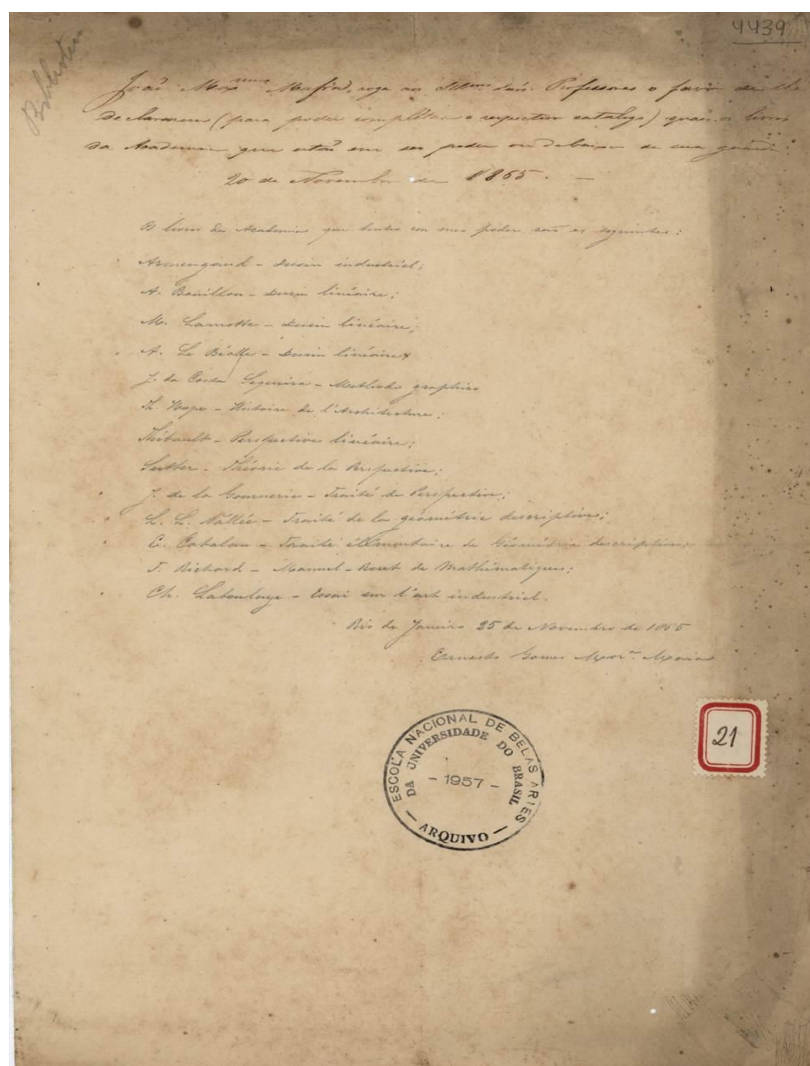 4439
Biblioteca
João Max.mno Mafra, roga aos Illmos Snrs. Professores o favor de lhe
declararem (para poder completar o respectivo catalogo) quaes os livros
da Academia que estão em seu poder ou debaixo de sua guarda.
20 de Novembro de 1865. —
Os livros da Academia que tenho em meu poder são os seguintes:
Armengaud – Dessin industriel;
A. Bouillon – Dessin linéaire;
M. Lamotte – Dessin linéaire;
A. Le Béalle – Dessin linéaire;
J. da Costa Sequeira – Methodo graphico
Th. Hope – Histoire de l'Architecture;
Thibault – Perspective linéaire;
Sutter – Théorie de la Perspective;
J. de la Gournerie – Traité de Perspective;
L. L. Vallée – Traité de la géométrie descriptive;
E. Catalan – Traité élémentaire de Géométrie descriptive;
T. Richard – Manuel – Roret de Mathématiques;
Ch. Laboulaye – Essai sur l'art industriel.
Rio de Janeiro 25 de Novembro de 1865
Ernesto Gomes Mor.a Maia
21
ESCOLA NACIONAL DE BELAS ARTES
DA UNIVERSIDADE DO BRASIL
– 1957 –
— ARQUIVO —